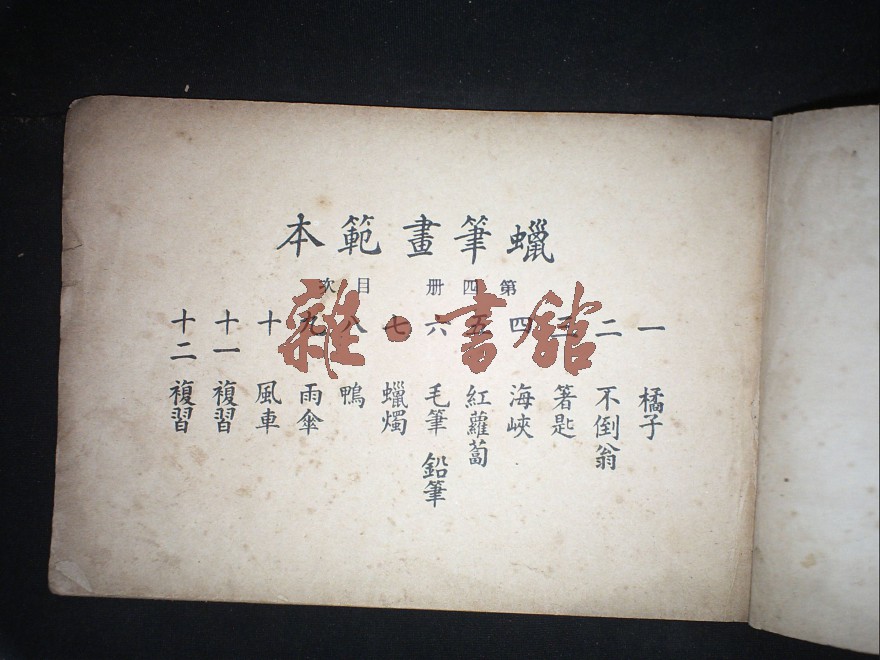 蠟筆畫範本
第四册 目次
一 橘子
二 不倒翁
三 箸匙
四 海峽
五 紅蘿蔔
六 毛筆 鉛筆
七 蠟燭
八 鴨
九 雨傘
十 風車
十一 複習
十二 複習
雜·書館